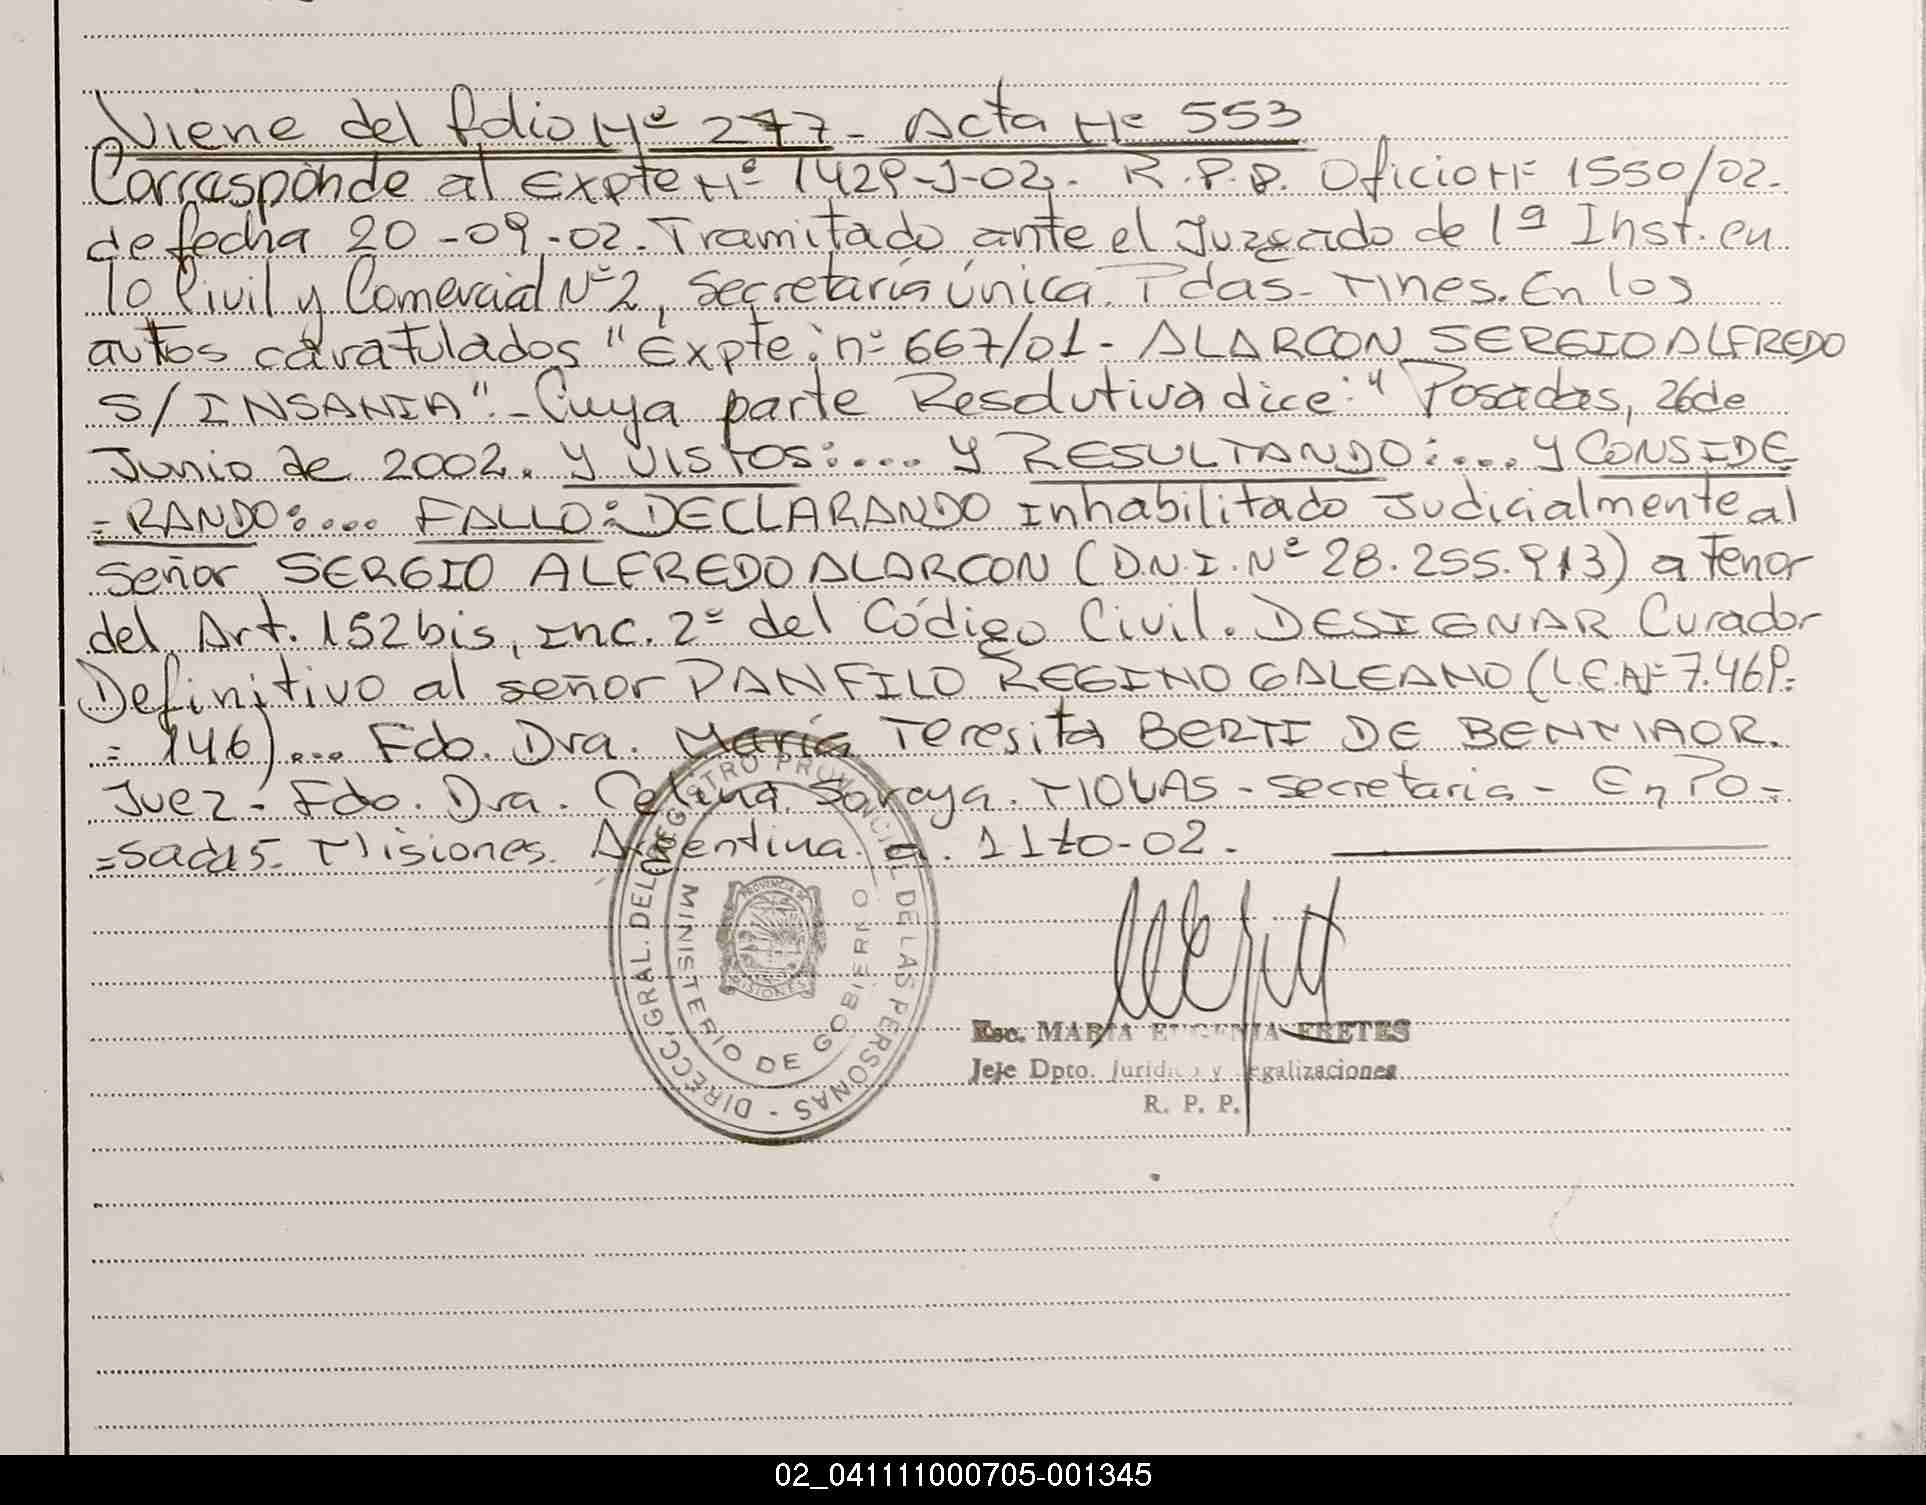 Viene del folio Nº 277- Acta Nº 553
Corresponde al Expte Nº 1429-J-02. R.P.P. Oficio Nº 1550/02.
de fecha 20-09-02. Tramitado ante el Juzgado de 1ª Inst. en
lo Civil y Comercial Nº 2, Secretaría única. Pdas- Mnes. En los
autos caratulados "Expte: nº 667/01- ALARCON SERGIO ALFREDO
S/INSANIA".- Cuya parte Resolutiva dice: "Posadas, 26 de
Junio de 2002. y VISTOS:... y RESULTANDO:... y CONSIDE
=RANDO:... FALLO: DECLARANDO Inhabilitado Judicialmente al
señor SERGIO ALFREDO ALARCON (D.N.I. Nº 28.255.913) a Tenor
del Art. 152 bis, Inc. 2º del Código Civil. DESIGNAR Curador
Definitivo al señor PANFILO REGINO GALEANO (L.E. Nº 7.469.=
=146)... Fdo. Dra. María Teresita BERTI DE
Juez- Fdo. Dra. Celina Soraya. - Secretaria - En Po=
=sadas- Misiones. Argentina. a. 11-10-02.
DIRECC. GRAL. DEL REGISTRO PROVINCIAL DE LAS PERSONAS -
MINISTERIO DE GOBIERNO
PROVINCIA DE
MISIONES
Esc. MARIA EUGENIA FRETES
Jefe Dpto. Jurídico y Legalizaciones
R. P. P.
02_041111000705-001345